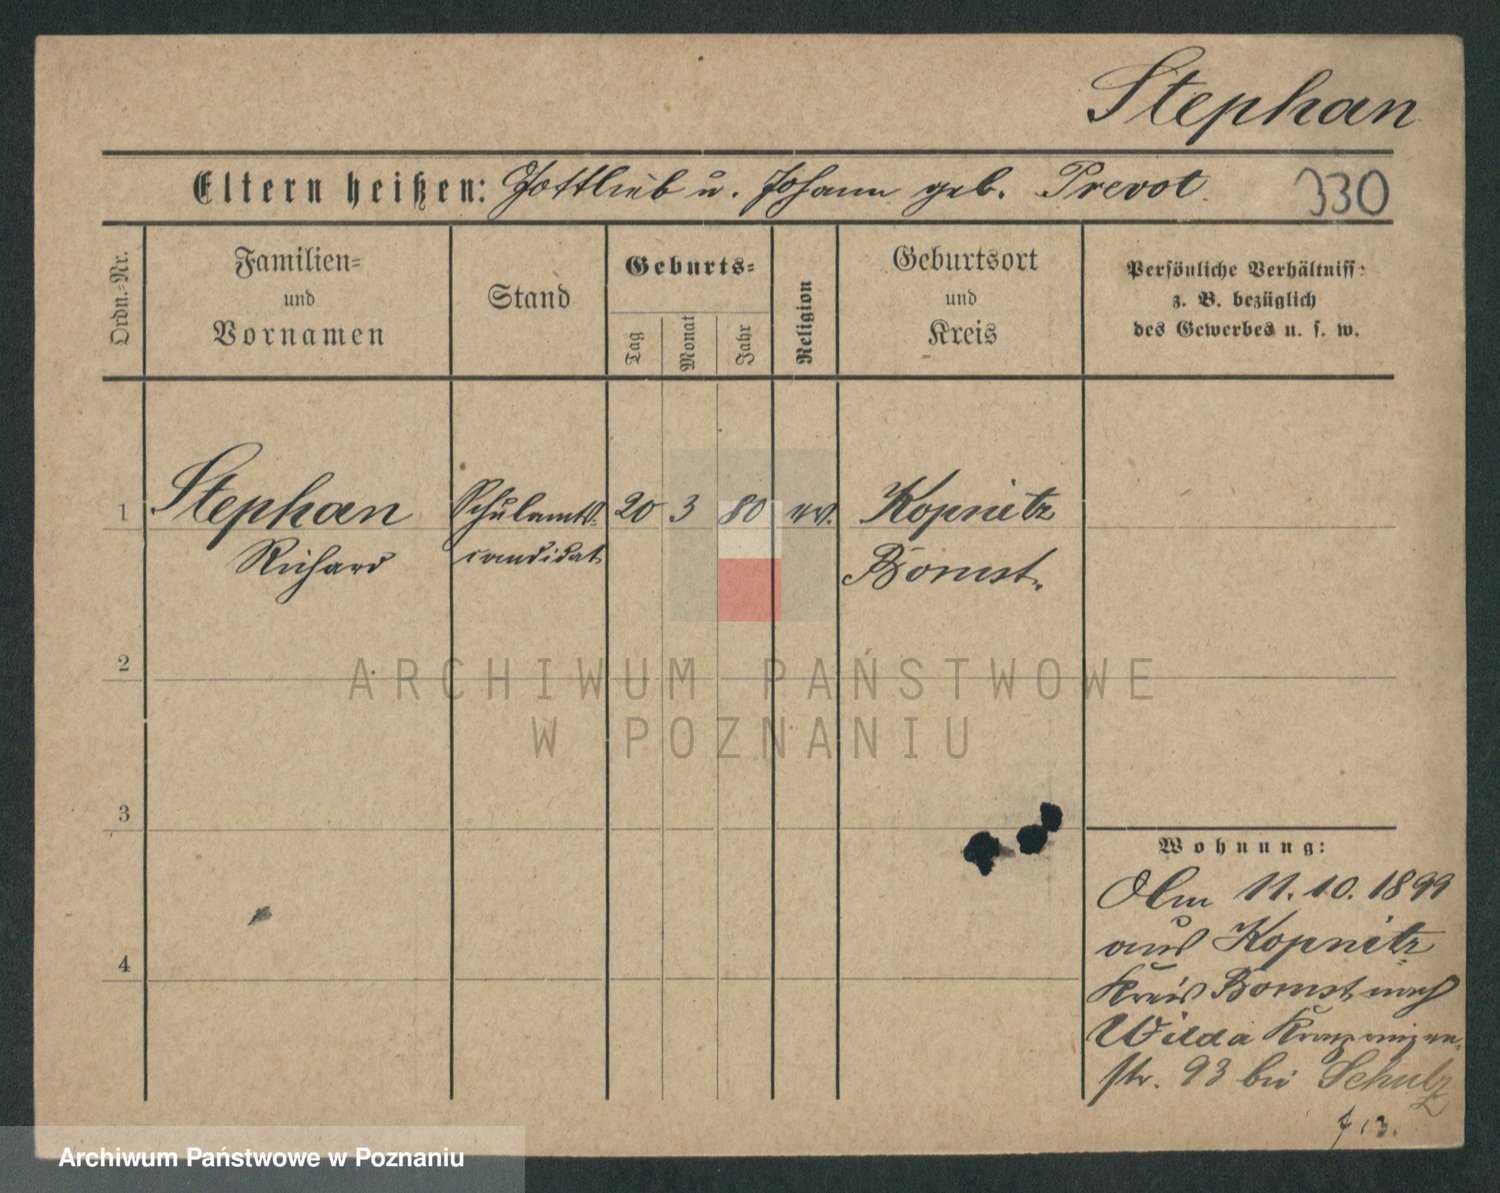 Stephan
Eltern heißen: Gottlieb u. Johann geb. Prevot.
330
Ordn.-Nr.
Familien-
und
Vornamen
Stand
Geburts-
Tag
Monat
Jahr
Religion
Geburtsort
und
Kreis
Persönliche Verhältniss-
z. B. bezüglich
des Gewerbes u. s. w.
1 Stephan Schulamts- 20 3 80 ev. Kopnitz
Richard candidat Bomst.
2
ARCHIWUM PAŃSTWOWE
W POZNANIU
3
4
Wohnung:
Am 11.10.1899
aus Kopnitz
Kreis Bomst nach
Wilda Kronprinzen-
str. 93 bei Schulz
Archiwum Państwowe w Poznaniu